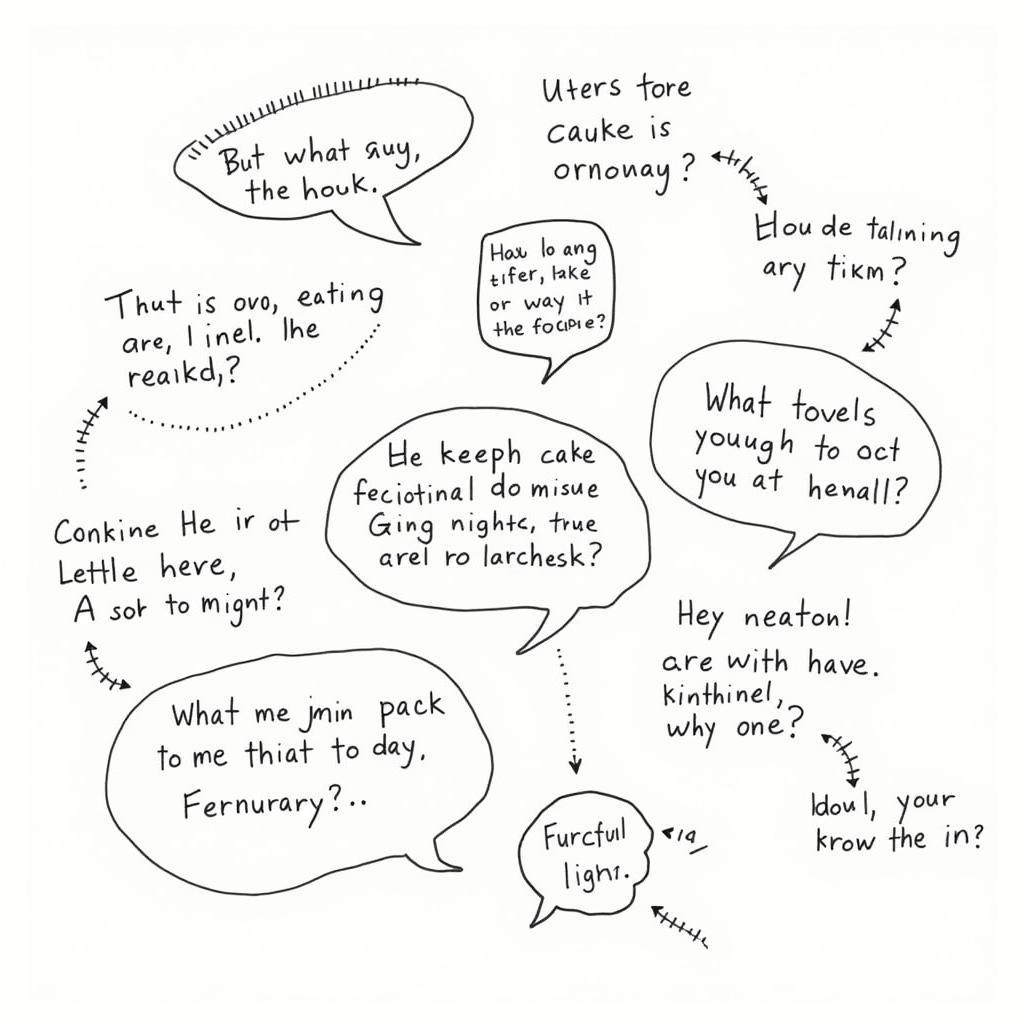 But what guy,
the houk.
Uters tore
cauke is
ornonay?
Hou de talining
ary tikm?
Hau lo ang
tifer, lake
or way it
the focipie?
Thut is ovo, eating
are, I inel. Ihe
reaikd,?
What tovels
youugh to oct
you at henall?
He keeph cake
feciotinal do misue
Ging nightc, true
arel ro larchesk?
Conkine He ir ot
Lettle here,
A sor to mignt?
Hey neaton!
are with have.
kinthinel,
why one?
What me jmin pack
to me thiat to day,
Fernurary?..
Idou l, your
krow the in?
Furcfuil
light.